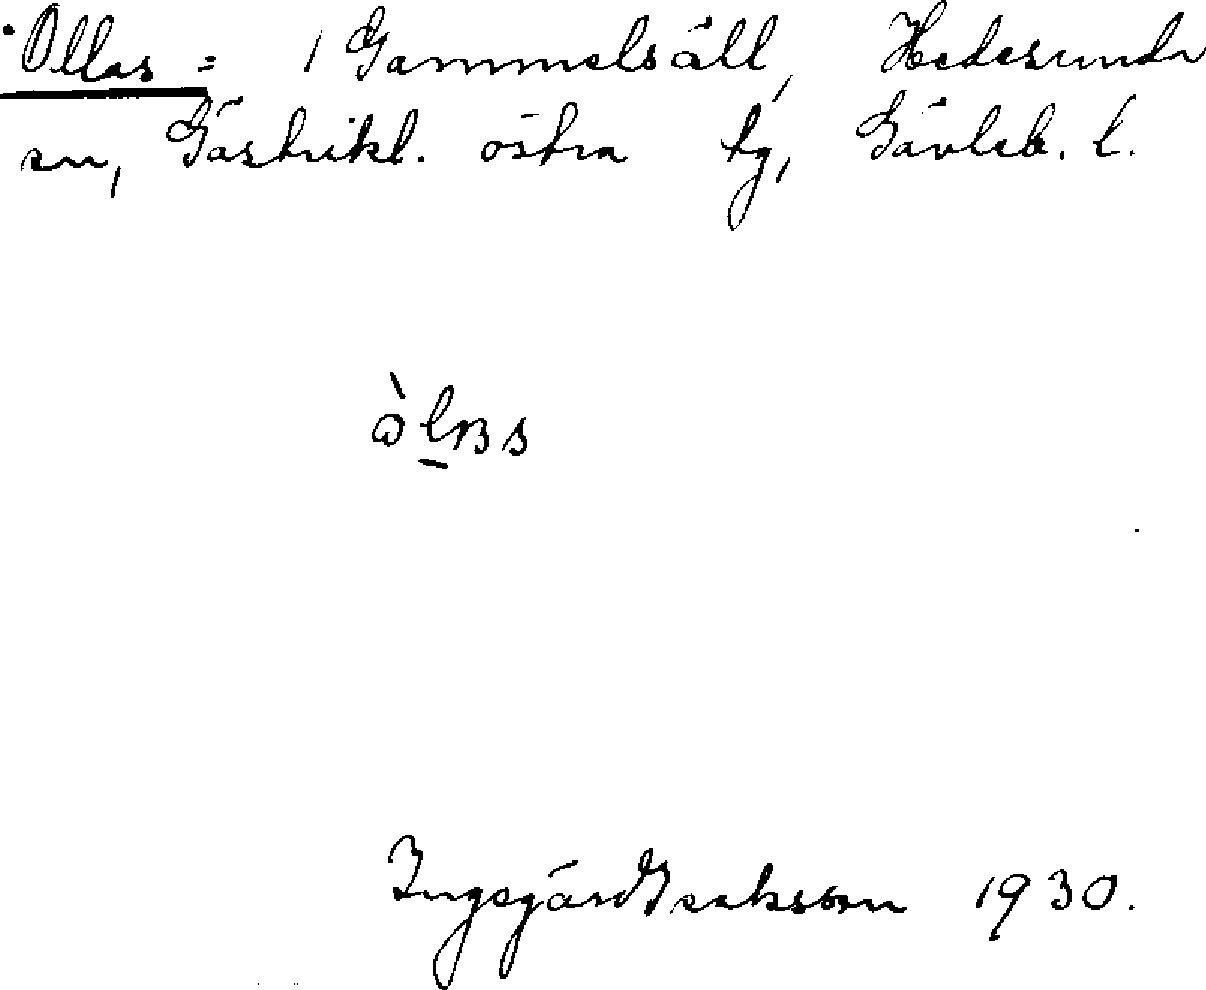 Ollas = 1 Gammelsäll, Hedesunda
sn, Gästrikl. östra tg, Gävleb. l.
Ingegärd Isaksson 1930.